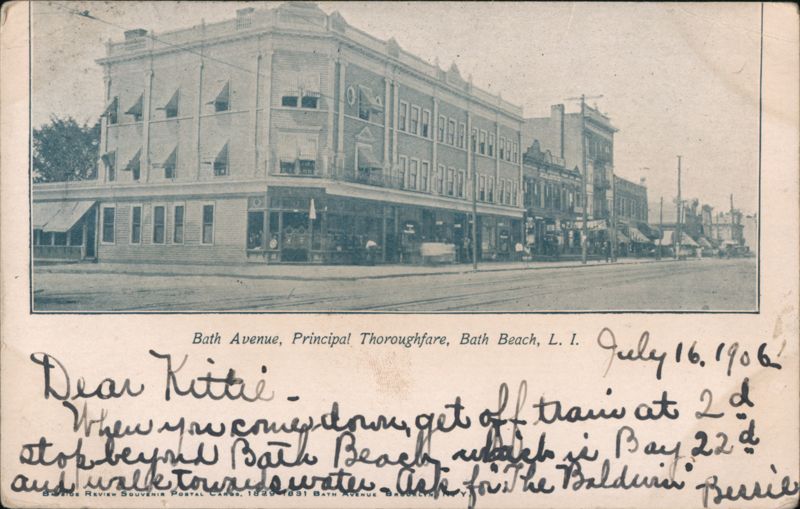 Bath Avenue, Principal Thoroughfare, Bath Beach, L. I.
July 16, 1906
Dear Kittie -
When you come down, get off train at 2d
stop beyond Bath Beach which is Bay 22d
and walk towards water. Ask for "The Baldwin" Bessie
Bayside Review Souvenir Postal Cards, 1829-1831 Bath Avenue Brooklyn, N.Y.